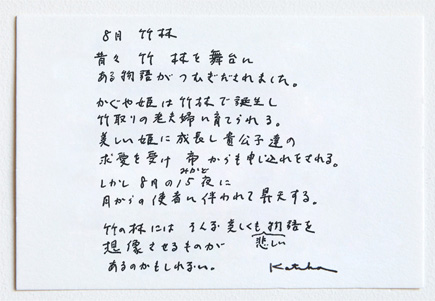 8月 竹林
昔々 竹林を舞台に
ある物語がつむぎだされました。
かぐや姫は竹林で誕生し
竹取りの老夫婦に育てられる。
美しい姫に成長し貴公子達の
求愛を受け 帝からも申し込れをされる。
みかど
しかし8月の15夜に
月からの使者に伴われて昇天する。
竹の林には そんな美しくも物語を
悲しい
想像させるものが
あるのかもしれない。